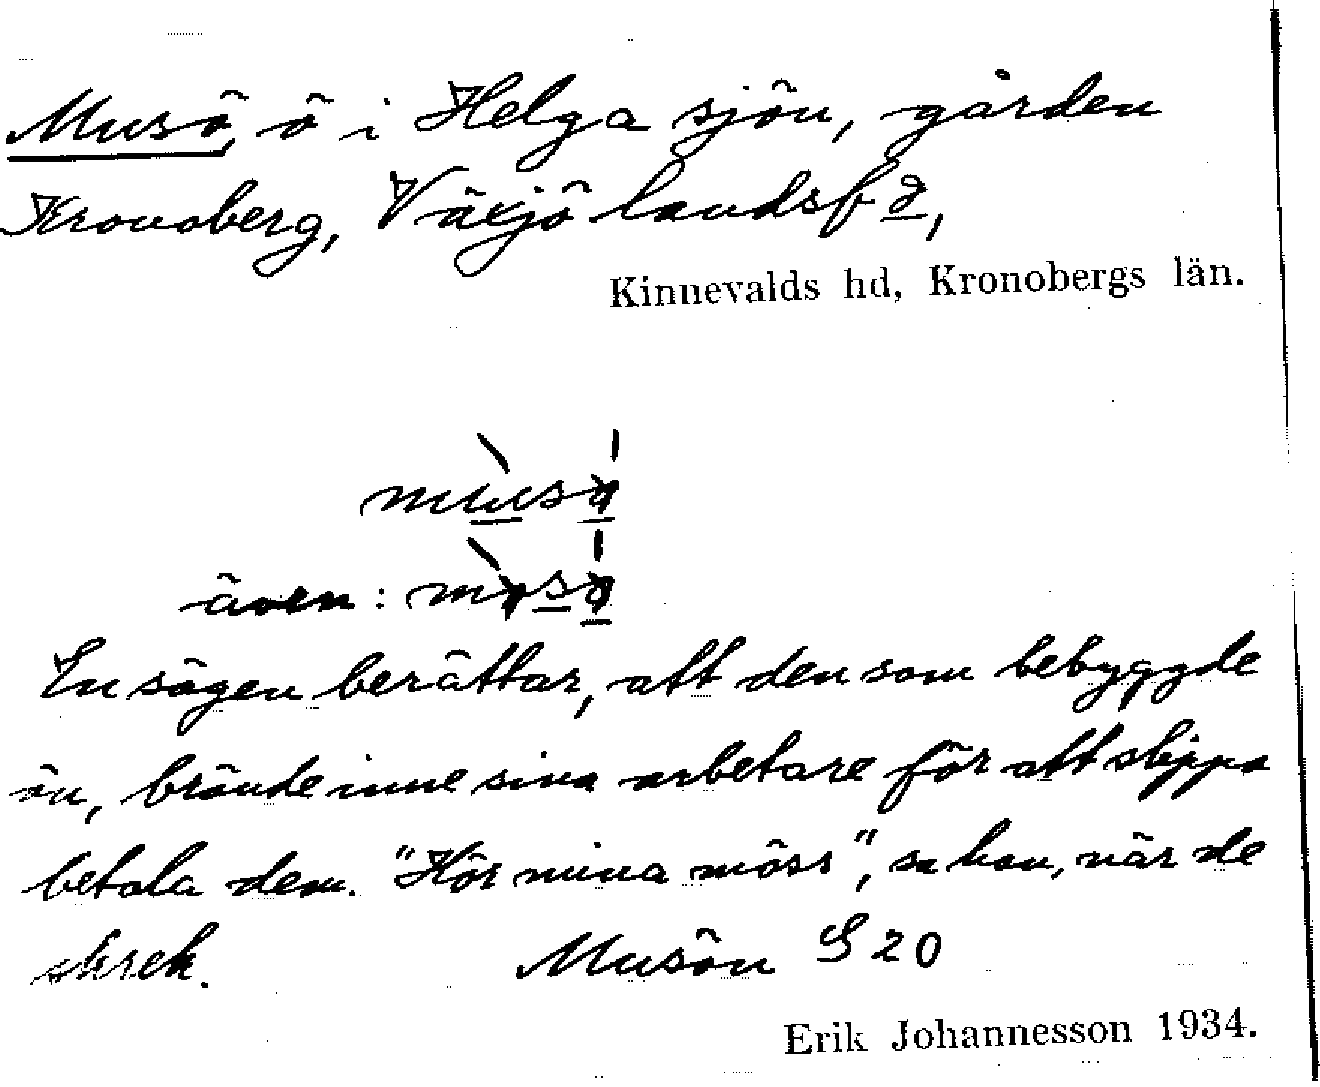 Musö, ö i Helga sjön, gården
Kronoberg, Växjö landsf d,
Kinnevalds hd, Kronobergs län.
även:
En sägen berättar, att den som bebyggde
ön, brände inne sina arbetare för att slippa
betala dem. "Hör mina möss", sa han, när de
skrek. Musön S 20
Erik Johannesson 1934.